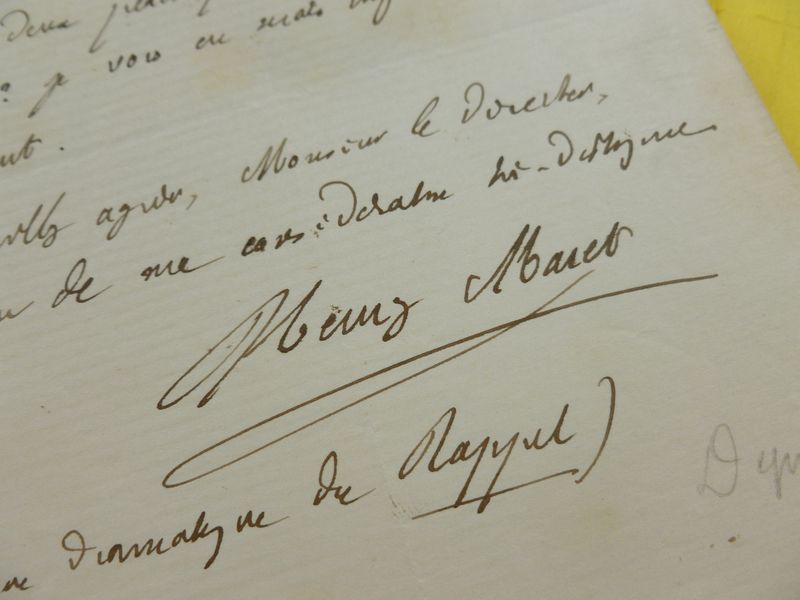 deux
? je vous en mais
ut.
agréer, Monsieur le Directeur,
de ma considération très-distinguée
Henry Maret
dramatique du Rappel)